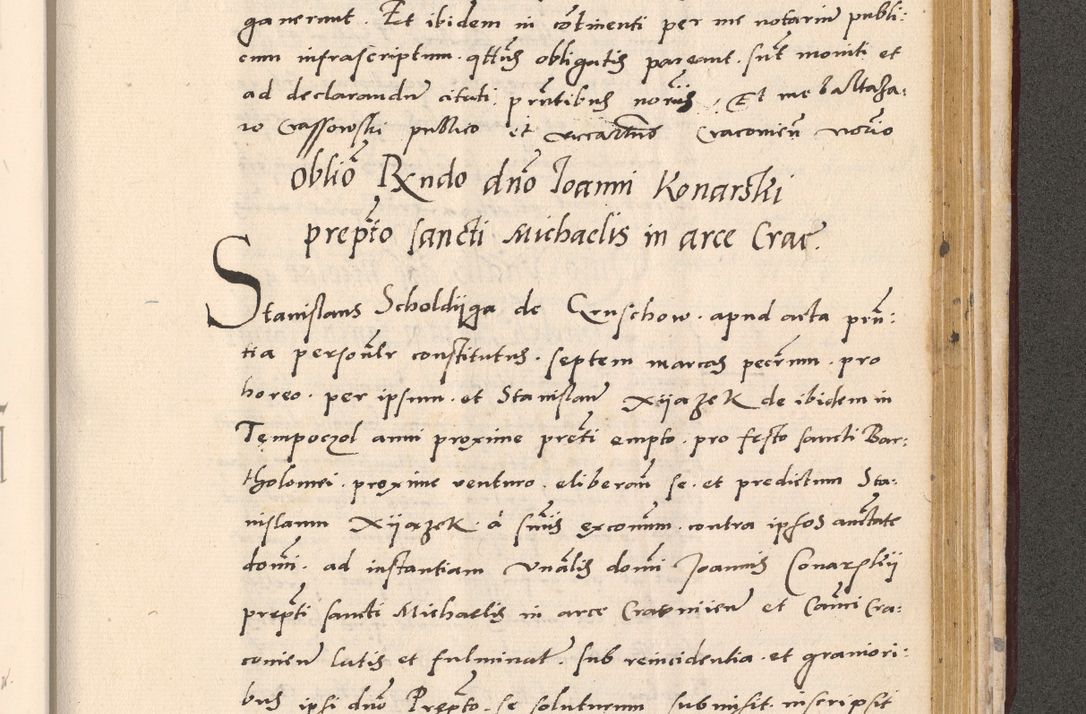 ganerunt. Et ibidem in cōtinenti per me notariū publi:
cum infrascriptum. qttūs obligatis pareant. sūt moniti et
ad declarandū citati. prūtibus norijs. Et me baltasa:
ro Crassowski publico et Cracovieñ norio
Obliō Rxndo dño Joanni Konarski
prepīto sancti Michaelis in arce Crac.
Stanislaus Scholdijga de Cruschow. apud acta prñ:
tia personlr constitutus. septem marcas pecrum. pro
horeo. per ipsum. et Stanislaū Xijazek de ibidem in
Tempoczol anni proxime preti empto. pro festo sancti Bar:
tholomei. proxime venturo. eliberoñ se. et predictum Sta:
nislaum Xijazek. à sñijs exconum. contra ipsos auctate
domi. ad instantiam Vnālis domi Joannis Conarskij
prepti sancti Michaelis in arce et Canci Cra:
conieñ latis et fulminat. sub reincidentia. et graniori:
bus ipsi dño Prepto. se soluturum submisit. inscripsit